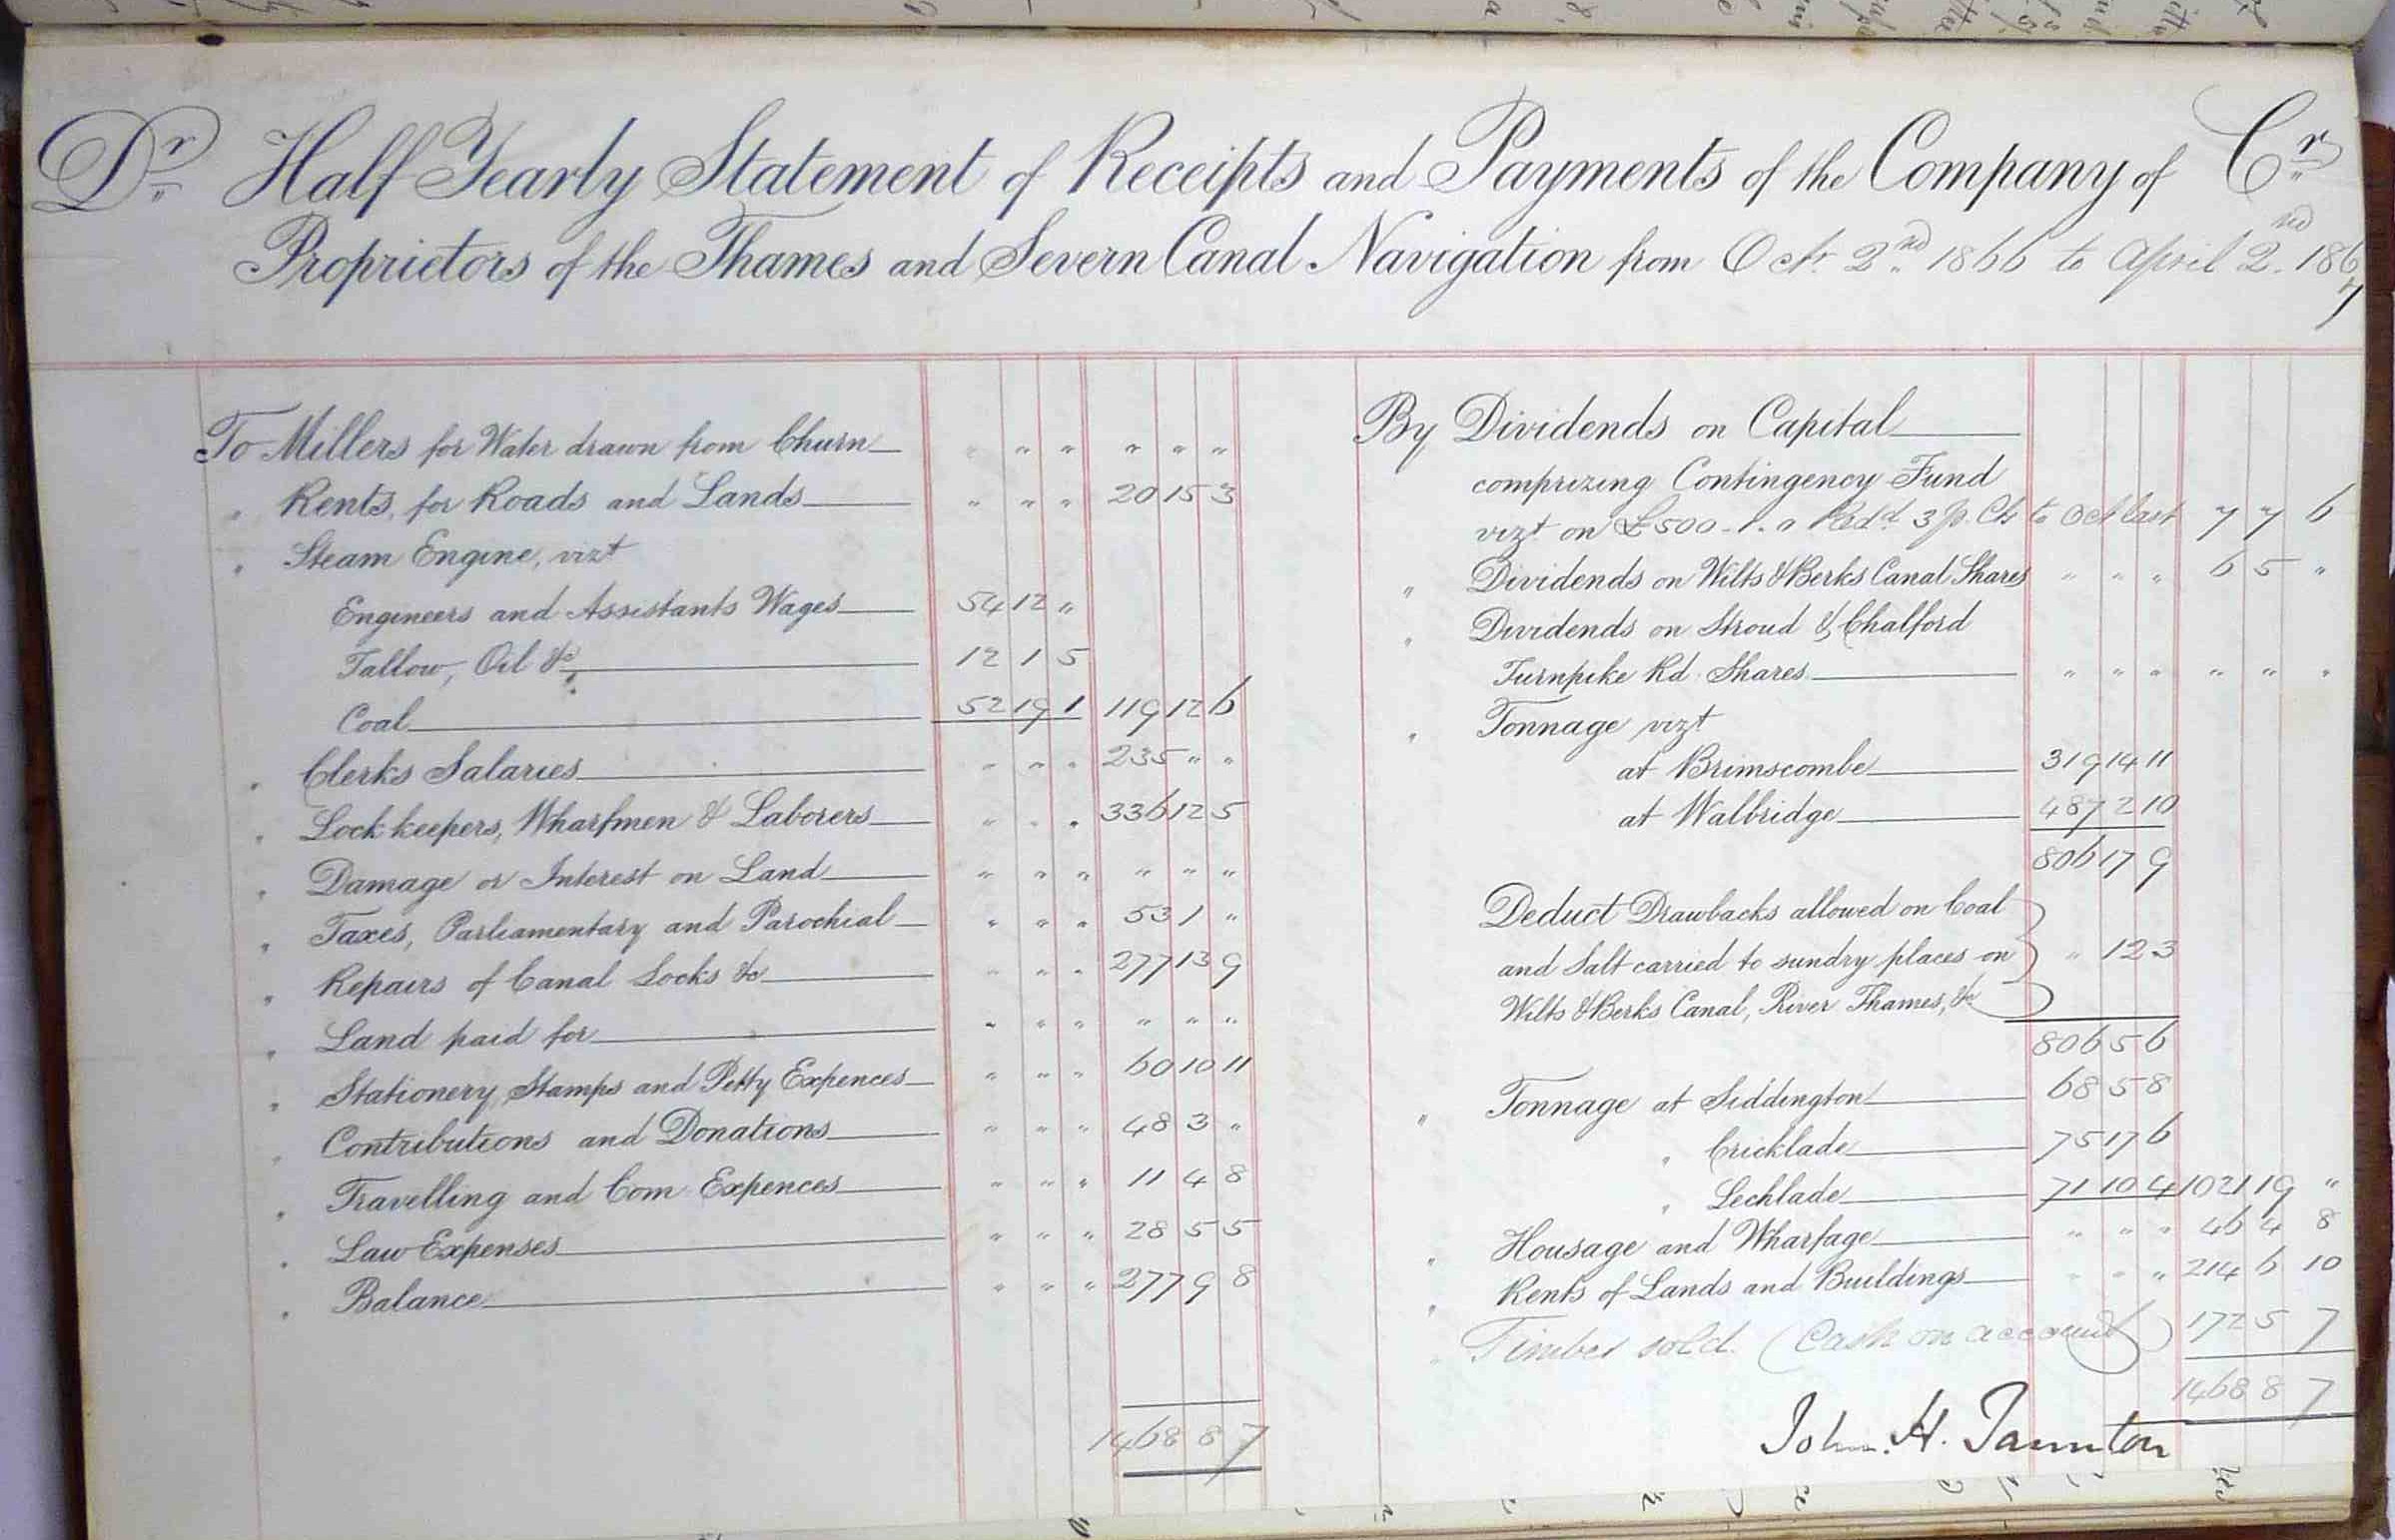 Dr Half Yearly Statement of Receipts and Payments of the Company of Cr
Proprietors of the Thames and Severn Canal Navigation from Octr 2nd 1866 to April 2nd 1867
To Millers for Water drawn from Churn " " " " " "
" Rents, for Roads and Lands " " " 20 15 3
" Steam Engine, vizt
Engineers and Assistants Wages 54 12 "
Tallow, Oil &c 12 1 5
Coal 52 19 1 119 12 6
" Clerks Salaries " " " 235 " "
" Lock keepers, Wharfmen & Laborers " " " 336 12 5
" Damage or Interest on Land " " " " " "
" Taxes, Parliamentary and Parochial " " " 53 1 "
" Repairs of Canal Locks &c " " " 277 13 9
" Land paid for " " " " " "
" Stationery, Stamps and Petty Expences " " " 60 10 11
" Contributions and Donations " " " 48 3 "
" Travelling and Com Expences " " " 11 4 8
" Law Expenses " " " 28 5 5
" Balance " " " 277 9 8
1468 8 7
By Dividends on Capital
comprizing Contingency Fund
vizt on £500 - 1 . 0 Redd 3 p. Cts to Oct last 7 7 6
" Dividends on Wilts & Berks Canal Shares " " " 6 5 "
" Dividends on Stroud & Chalford
Turnpike Rd Shares " " " " " "
" Tonnage vizt
at Brimscombe 319 14 11
at Walbridge 487 2 10
806 17 9
Deduct Drawbacks allowed on Coal
and Salt carried to sundry places on " 12 3
Wilts & Berks Canal, River Thames, &c
806 5 6
" Tonnage at Siddington 68 5 8
" Cricklade 75 17 6
" Lechlade 71 10 4 1021 19 "
" Housage and Wharfage " " " 46 4 8
" Rents of Lands and Buildings " " " 214 6 10
" Timber sold. (Cash on account) 172 5 7
1468 8 7
John. H. Taunton